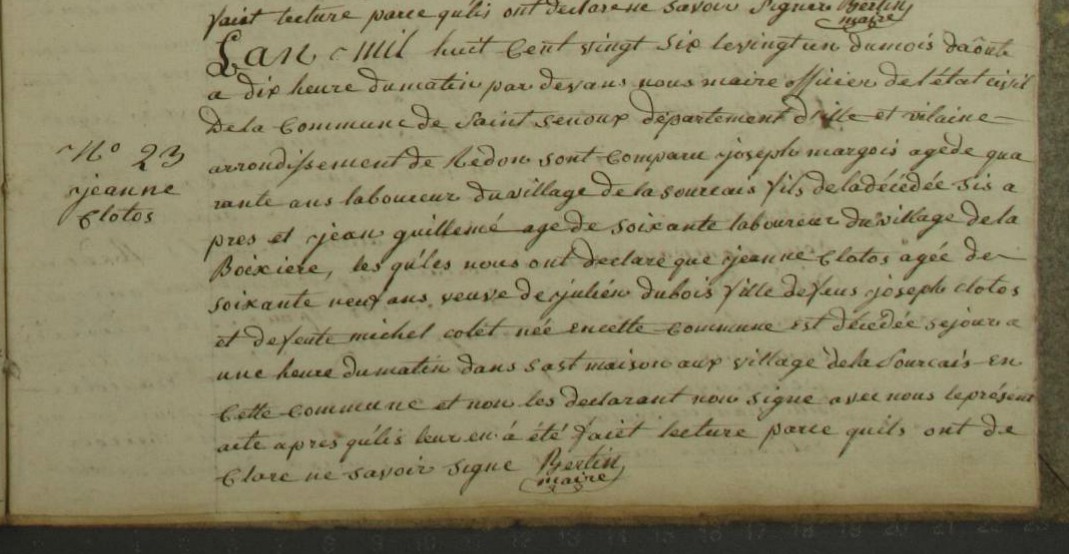 faict lecture parce qu'ils ont declare ne savoir signer Bertin
maire
L'an mil huit cent vingt six le vingt un du mois d'aôut
a dix heure du matin par devans nous maire officier de l'état civil
De la Commune de Saint senoux département d'ille et vilaine
arrondissement de Redon sont comparu joseph margois age de qua
N° 23
jeanne
Clotos
rante ans laboureur du village de la sourcais fils de la décédée sis a
pres et jean guillemé age de soixante laboureur du village de la
Boixiere, les qu'les nous ont declare que jeanne Clotos agée de
soixante neuf ans veuve de julién dubois fille de feus joseph clotos
et de feute michel colet neé en cette commune est décédée se jour a
une heure du matin dans sast maison aux village de la Sourcais en
Cette commune et non les declarant non signe avec nous le présent
acte apres qu'lis leur en á été faict lecture parce quils ont de
Clare ne savoir signe Bertin
maire